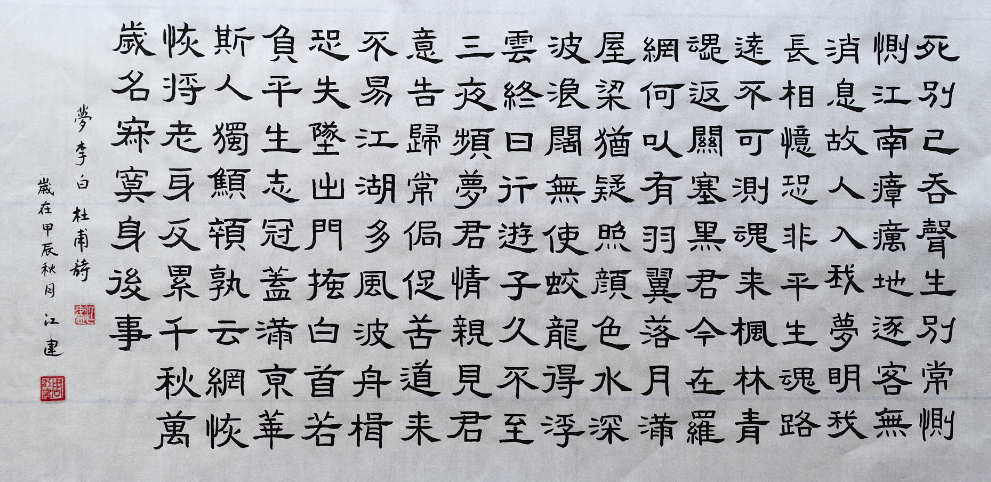 死别已吞聲生别常惻
惻江南瘴癘地逐客無
消息故人入我夢明我
長相憶恐非平生魂路
遠不可測魂来楓林青
魂返關塞黑君今在羅
網何以有羽翼落月滿
屋梁猶疑照顏色水深
波浪闊無使蛟龍得浮
雲終日行遊子久不至
三夜頻夢君情親見君
意告歸常侷促苦道来
不易江湖多風波舟楫
恐失墜出門搔白首若
負平生志冠蓋滿京華
斯人獨顦顇孰云網恢
恢将老身反累千秋萬
歲名寂寞身後事
夢李白 杜甫詩
歲在甲辰秋月 江建